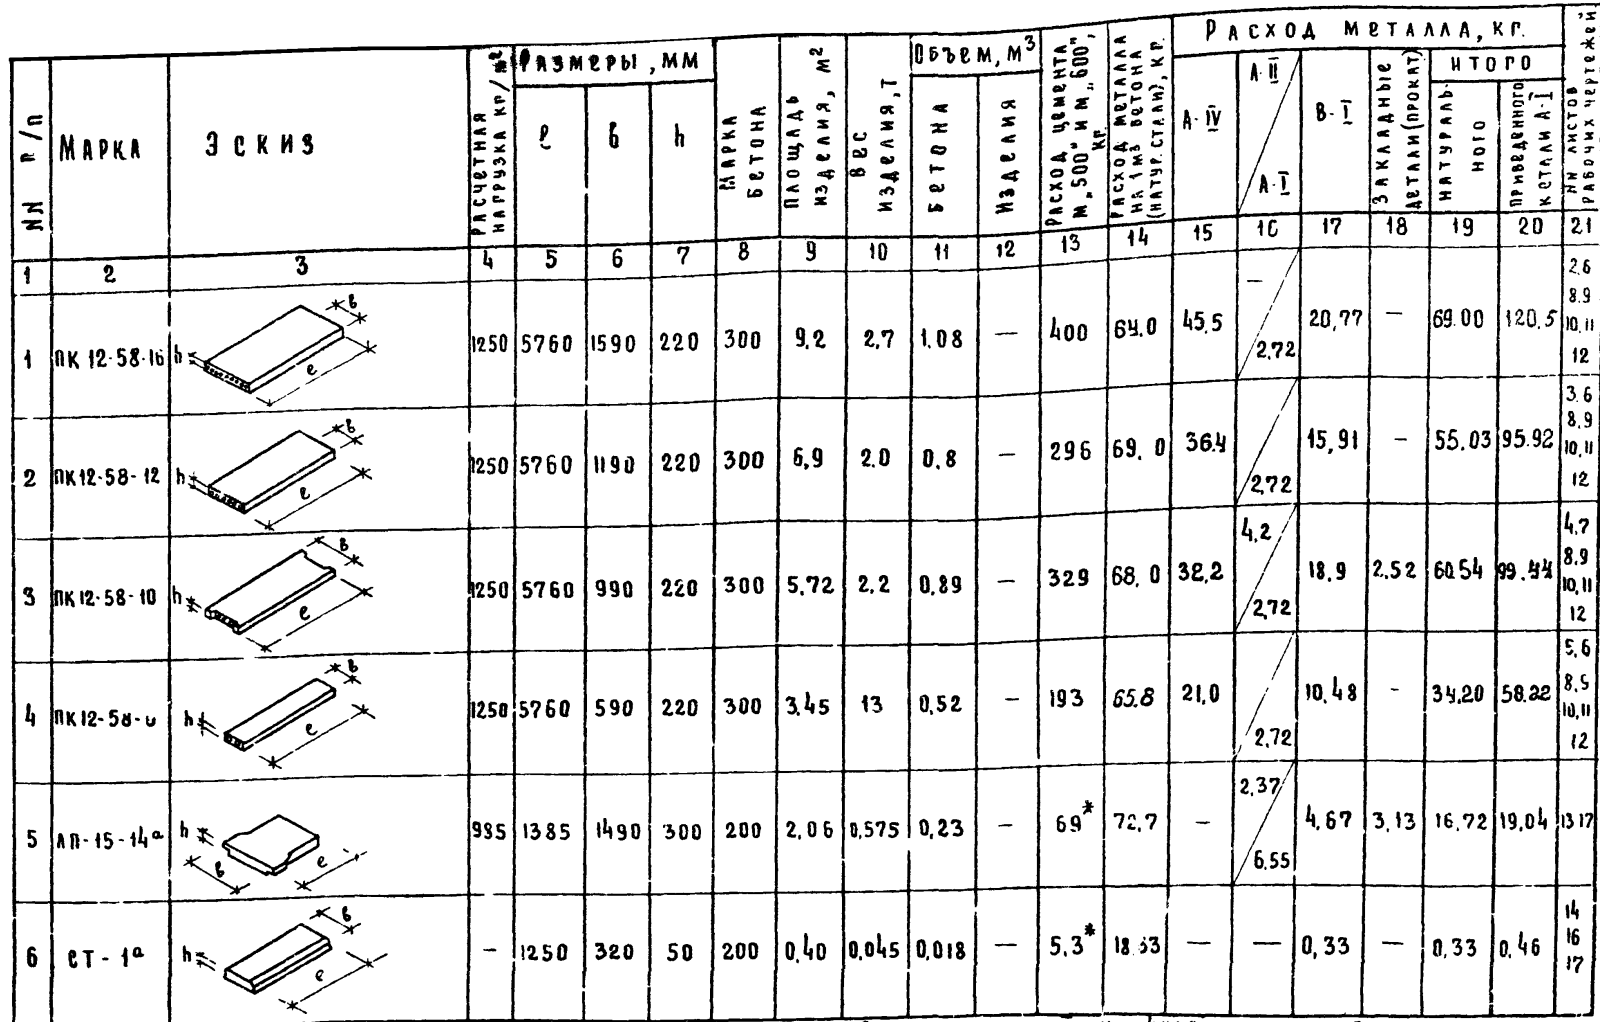 NN п/п | Марка | Эскиз | Расчетная нагрузка кг/м² | Размеры, мм | Марка бетона | Площадь изделия, м² | Вес изделия, т | Объем, м³ | Расход цемента м„500" и м„600", кг | Расход металла на 1м3 бетона (натур. стали), кг. | Расход металла, кг. | NN листов рабочих чертежей
ℓ | в | h | бетона | изделия | А-IV | А-II / А-I | В-I | Закладные детали (прокат) | Итого
натурального | приведенного к стали А-I
1 | 2 | 3 | 4 | 5 | 6 | 7 | 8 | 9 | 10 | 11 | 12 | 13 | 14 | 15 | 16 | 17 | 18 | 19 | 20 | 21
1 | ПК 12-58-16 | h в ℓ | 1250 | 5760 | 1590 | 220 | 300 | 9,2 | 2,7 | 1,08 | — | 400 | 64.0 | 45,5 | — / 2,72 | 20,77 | — | 69.00 | 120,5 | 2,6 8.9 10,11 12
2 | ПК12-58-12 | h в ℓ | 1250 | 5760 | 1190 | 220 | 300 | 6,9 | 2.0 | 0,8 | — | 296 | 69,0 | 36.4 | 2,72 | 15,91 | — | 55.03 | 95.92 | 3.6 8,9 10,11 12
3 | ПК12-58-10 | h в ℓ | 1250 | 5760 | 990 | 220 | 300 | 5,72 | 2,2 | 0,89 | — | 329 | 68,0 | 32,2 | 4,2 / 2,72 | 18,9 | 2.52 | 60.54 | 99.44 | 4,7 8,9 10,11 12
4 | ПК12-58-6 | h в ℓ | 1250 | 5760 | 590 | 220 | 300 | 3,45 | 13 | 0,52 | — | 193 | 65.8 | 21,0 | 2,72 | 10,48 | - | 34,20 | 58.22 | 5,6 8,9 10,11 12
5 | ЛП-15-14ᵃ | h в ℓ | 985 | 1385 | 1490 | 300 | 200 | 2,06 | 0,575 | 0,23 | — | 69* | 72,7 | — | 2,37 / 6,55 | 4,67 | 3,13 | 16.72 | 19,04 | 13 17
6 | СТ-1ᵃ | h в ℓ | — | 1250 | 320 | 50 | 200 | 0,40 | 0,045 | 0,018 | — | 5.3* | 18.33 | — | — | 0,33 | — | 0,33 | 0,46 | 14 16 17